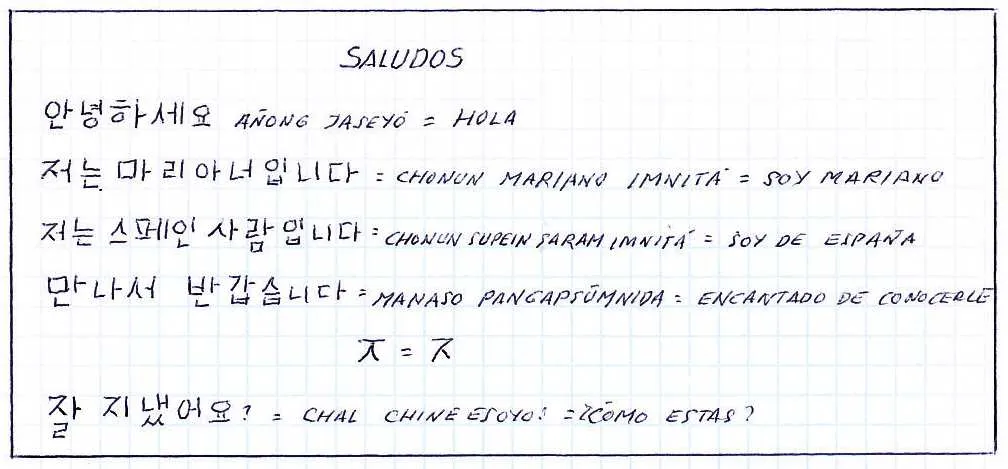 SALUDOS
안녕하세요 AÑONG JASEYÓ = HOLA
저는 마리아너입니다 = CHONUN MARIANO IMNITÁ = SOY MARIANO
저는 스페인 사람입니다 = CHONUN SUPEIN SARAM IMNITÁ = SOY DE ESPAÑA
만나서 반갑습니다 = MANASO PANGAPSÚMNIDA = ENCANTADO DE CONOCERLE
ㅈ = ㅈ
잘 지냈어요? = CHAL CHINEESOYO? = ¿CÓMO ESTAS?